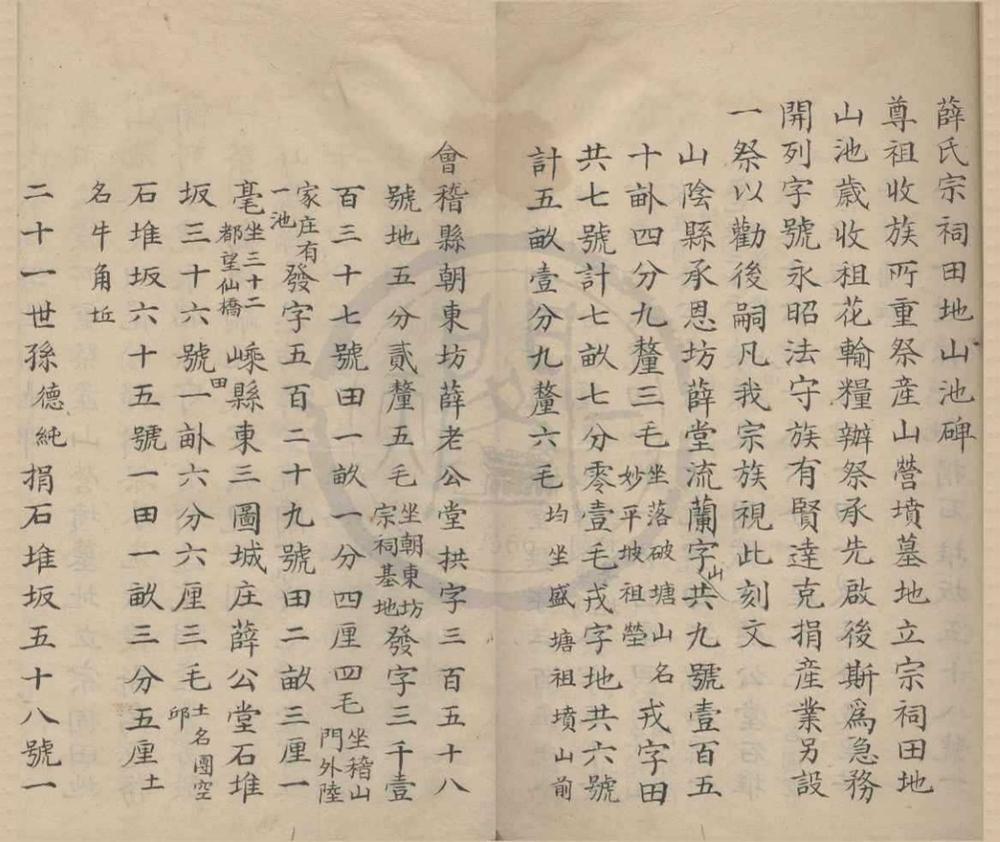 薛氏宗祠田地山池碑
尊祖收族所重祭産山營墳墓地立宗祠田地
山池歲收租花輸糧辦祭承先啟後斯爲急務
開列字號永昭法守族有賢達克捐産業另設
一祭以勸後嗣凡我宗族視此刻文
山陰縣承恩坊薛堂流蘭字山共九號壹百五
十畝四分九釐三毛坐落破塘山名妙平坡祖塋戎字田
共七號計七畝七分零壹毛戎字地共六號
計五畝壹分九釐六毛均坐盛塘祖墳山前
會稽縣朝東坊薛老公堂拱字三百五十八
號地五分貳釐五毛坐朝東坊宗祠基地發字三千壹
百三十七號田一畝一分四厘四毛坐稽山門外陸
家庄有一池發字五百二十九號田二畝三厘一
毫坐三十二都望仙橋嵊縣東三圖城庄薛公堂石堆
坂三十六號田一畝六分六厘三毛土名團空邱
石堆坂六十五號一田一畝三分五厘土
名牛角坵
二十一世孫德純捐石堆坂五十八號一